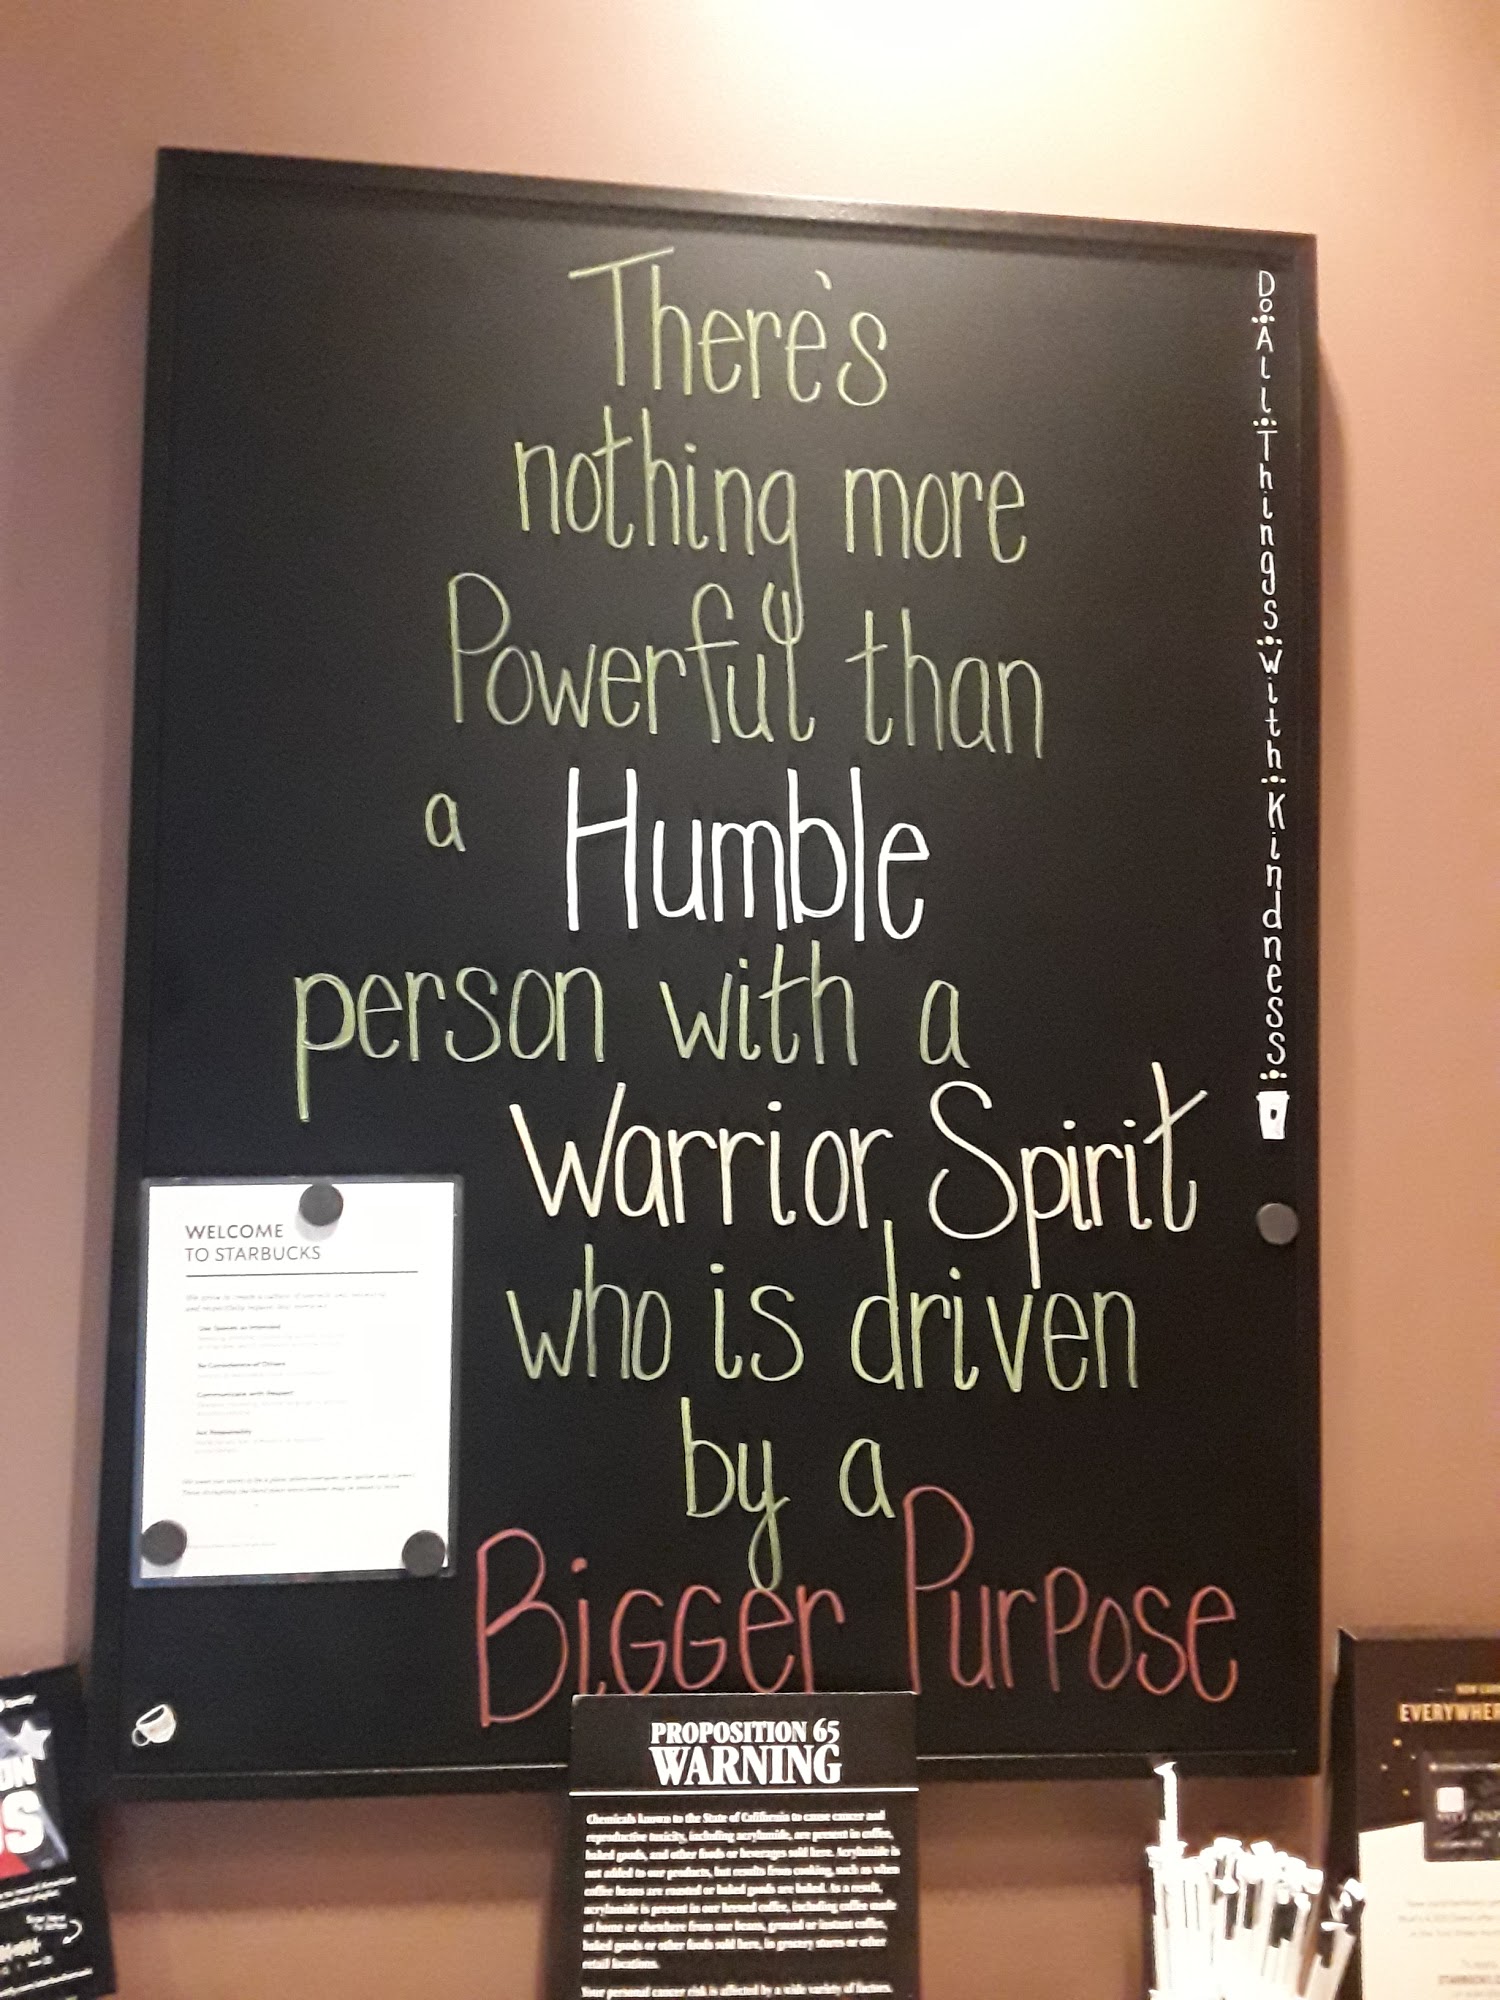 There's
nothing more
Powerful than
a Humble
person with a
Warrior Spirit
who is driven
by a
Bigger Purpose
Do All Things with Kindness
WELCOME
TO STARBUCKS
Use Spaces as Intended
Be Considerate of Others
Communicate with Respect
Act Responsibly
PROPOSITION 65
WARNING
Chemicals known to the State of California to cause cancer and
reproductive toxicity, including acrylamide, are present in coffee,
baked goods, and other foods or beverages sold here. Acrylamide is
not added to our products, but results from cooking, such as when
coffee beans are roasted or baked goods are baked. As a result,
acrylamide is present in our brewed coffee, including coffee made
at home or elsewhere from our beans, ground or instant coffee,
baked goods or other foods sold here, in grocery stores or other
retail locations.
Your personal cancer risk is affected by a wide variety of factors.
EVERYWHER